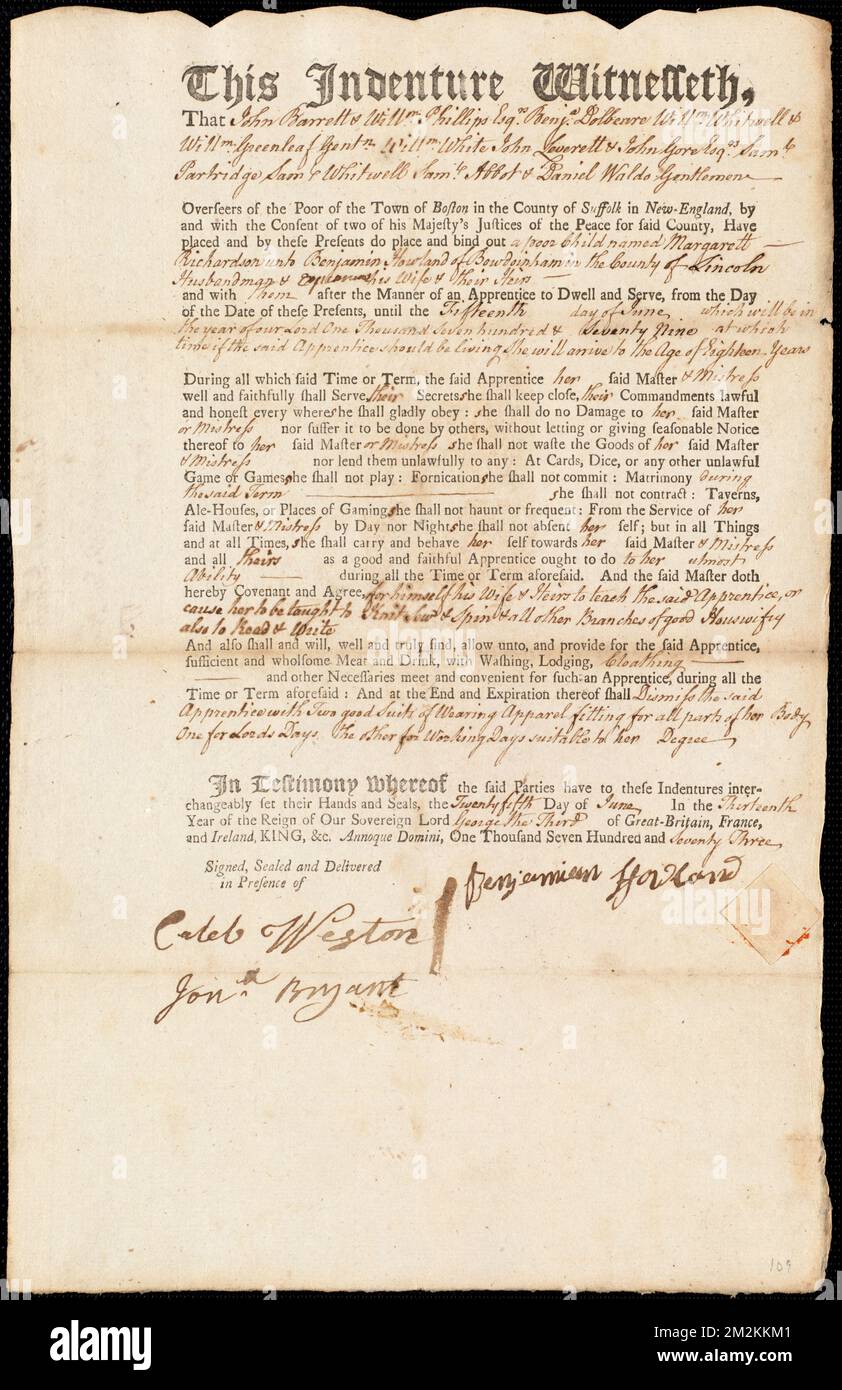 This Indenture Witnesseth,
That John Barrett & Willm Phillips Esqrs Benja Dolbeare Willm Whitwell &
Willm Greenleaf Gentn Willm White John Leverett & John Gore Esqrs Saml
Partridge Saml Whitwell Saml Abbot & Daniel Waldo Gentlemen
Overseers of the Poor of the Town of Boston in the County of Suffolk in New-England, by
and with the Consent of two of his Majesty's Justices of the Peace for said County, Have
placed and by these Presents do place and bind out a poor Child named Margarett
Richardson unto Benjamin Howland of Bowdoinham in the County of Lincoln
Husbandman & his Wife & their Heirs
and with them after the Manner of an Apprentice to Dwell and Serve, from the Day
of the Date of these Presents, until the Fifteenth day of June which will be in
the year of our Lord One Thousand Seven hundred & Seventy Nine at which
time if the said Apprentice should be living She will arrive to the Age of Eighteen Years
During all which said Time or Term, the said Apprentice her said Master & Mistress
well and faithfully shall Serve, their Secrets she shall keep close, their Commandments lawful
and honest every where she shall gladly obey: she shall do no Damage to her said Master
or Mistress nor suffer it to be done by others, without letting or giving seasonable Notice
thereof to her said Master or Mistress she shall not waste the Goods of her said Master
& Mistress nor lend them unlawfully to any: At Cards, Dice, or any other unlawful
Game or Games she shall not play: Fornication she shall not commit: Matrimony during
the said Term she shall not contract: Taverns,
Ale-Houses, or Places of Gaming she shall not haunt or frequent: From the Service of her
said Master & Mistress by Day nor Night she shall not absent her self; but in all Things
and at all Times, she shall carry and behave her self towards her said Master & Mistress
and all theirs as a good and faithful Apprentice ought to do to her utmost
Ability during all the Time or Term aforesaid. And the said Master doth
hereby Covenant and Agree, for himself his Wife & Heirs to teach the said Apprentice, or
cause her to be taught to Knit Sew & Spin & all other Branches of good Houswifry
also to Read & Write
And also shall and will, well and truly find, allow unto, and provide for the said Apprentice,
sufficient and wholsome Meat and Drink, with Washing, Lodging, Cloathing
and other Necessaries meet and convenient for such an Apprentice, during all the
Time or Term aforesaid: And at the End and Expiration thereof shall Dismiss the said
Apprentice with Two good Suits of Wearing Apparel fitting for all parts of her Body
One for Lords Days, the other for Working Days suitable to her Degree
In Testimony whereof the said Parties have to these Indentures inter-
changeably set their Hands and Seals, the Twenty fifth Day of June In the Thirteenth
Year of the Reign of Our Sovereign Lord George the Third of Great-Britain, France,
and Ireland, KING, &c. Annoque Domini, One Thousand Seven Hundred and Seventy Three
Signed, Sealed and Delivered
in Presence of
Benjamien Howland
Caleb Weston
Jona Bryant
109
alamy
Image ID: 2M2KKM1
www.alamy.com